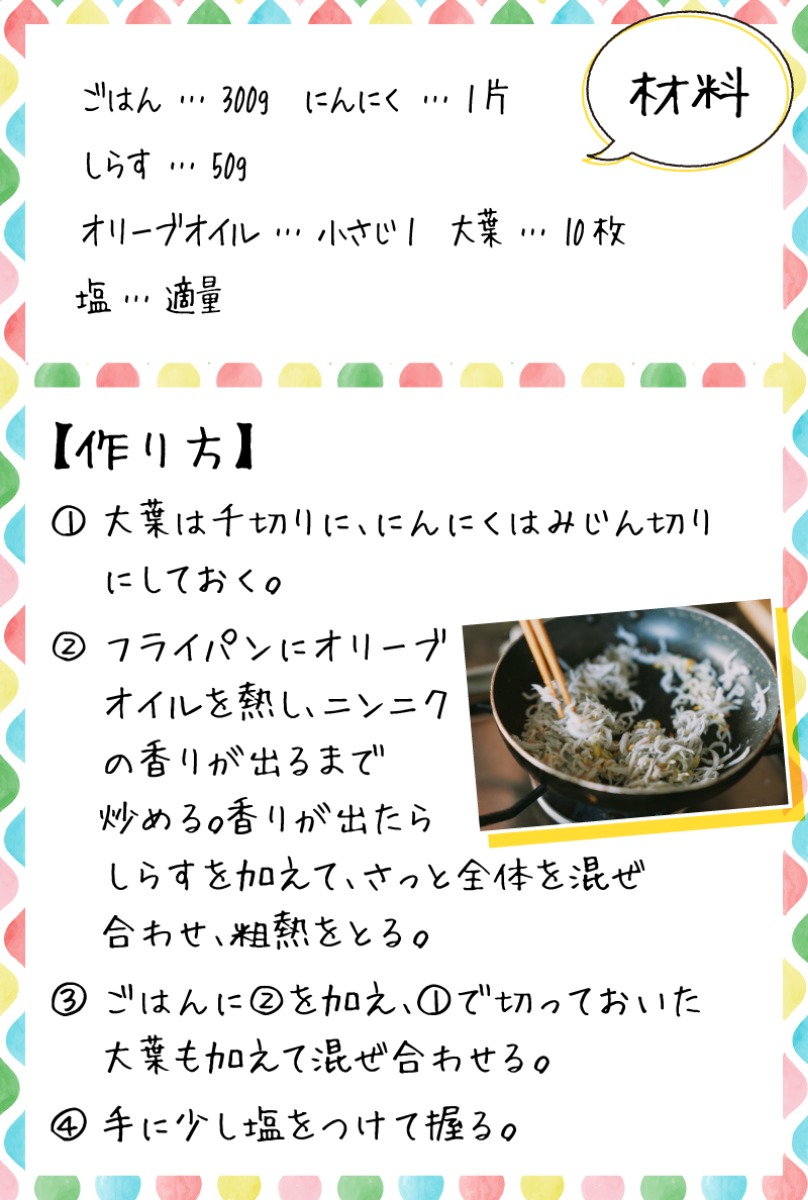 材料
ごはん … 300g　にんにく … 1片
しらす … 50g
オリーブオイル … 小さじ1　大葉 … 10枚
塩 … 適量
【作り方】
① 大葉は千切りに、にんにくはみじん切り
にしておく。
② フライパンにオリーブ
オイルを熱し、ニンニク
の香りが出るまで
炒める。香りが出たら
しらすを加えて、さっと全体を混ぜ
合わせ、粗熱をとる。
③ ごはんに②を加え、①で切っておいた
大葉も加えて混ぜ合わせる。
④ 手に少し塩をつけて握る。